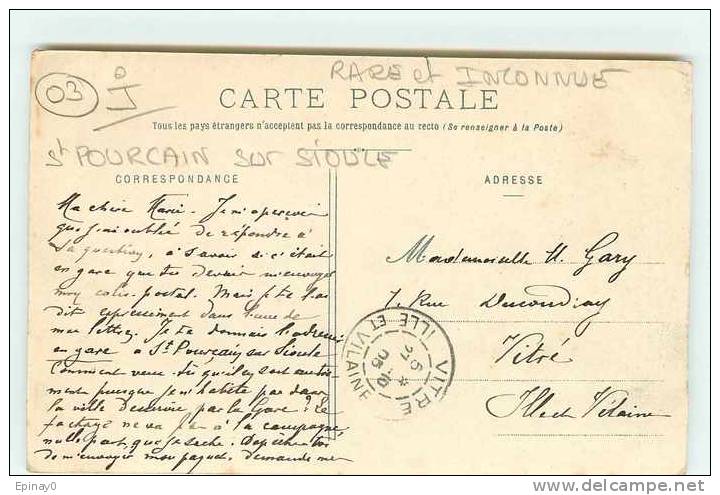 03
J
RARE et INCONNUE
CARTE POSTALE
Tous les pays étrangers n'acceptent pas la correspondance au recto (Se renseigner à la Poste)
St POURCAIN SUR SIOULE
CORRESPONDANCE
ADRESSE
Ma chère Marie - Je m'aperçois
que j'ai oublié de répondre à
ta question, à savoir si c'était
en gare que tu devais m'envoyer
mon colis-postal. Mais je te l'ai
dit expressément dans l'une de
mes lettres. Je te donnais l'adresse
en gare à St Pourçain sur Sioule
Comment veux-tu qu'ils
puisque je n'habite pas dans
la ville desservie par la Gare? Le
factage ne va pas à la campagne,
nulle part, que je sache. Dépêche-toi
de m'envoyer mon paquet. Demande
Mademoiselle M. Gary
7, Rue
Vitré
Ille et Vilaine
VITRE
ILLE ET VILAINE
Epinay0
www.delcampe.net